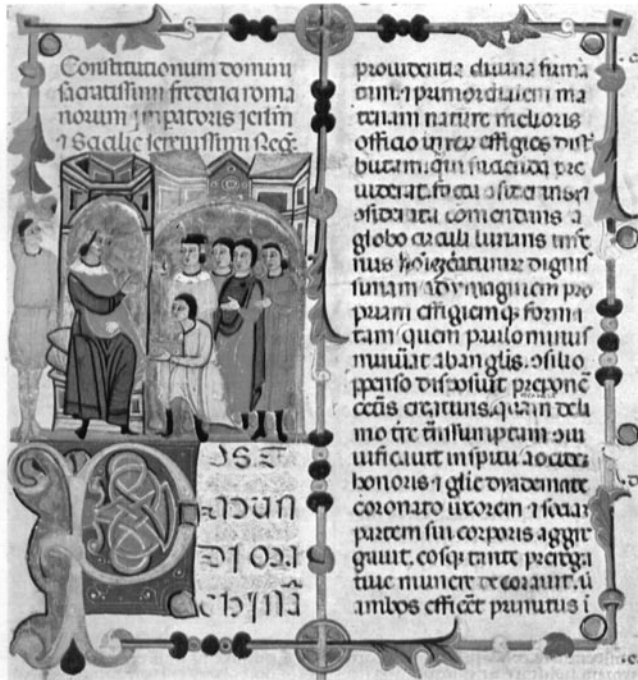 Constitutionum domini
sacratissimi frederici roma
norum imperatoris ierlm
7 Sicilie serenissimi Reg.
PoST
MUN
DI ORI
ChINA
prouidentia diuina firma
tum. 7 primordialem ma
teriam nature melioris
officio in reru effigies dist
butam. qui facienda pre
uiderat. facta
comendans a
globo circuli lunaris infe
rius dignis
simam ad ymaginem pro
priam effigiemq forma
tam quem paulo minus
minuerat ab anglis. osilio
ppenso disposuit prepone
ceteris creaturis. quam de li
mo tre transsumptam oui
uificauit in spiritu ac eidem
honoris 7 glie dyademate
coronato uxorem 7 sociam
partem sui corporis aggre
gauit. eosq tante preroga
tiue munere decorauit. ut
ambos efficeret primitus i